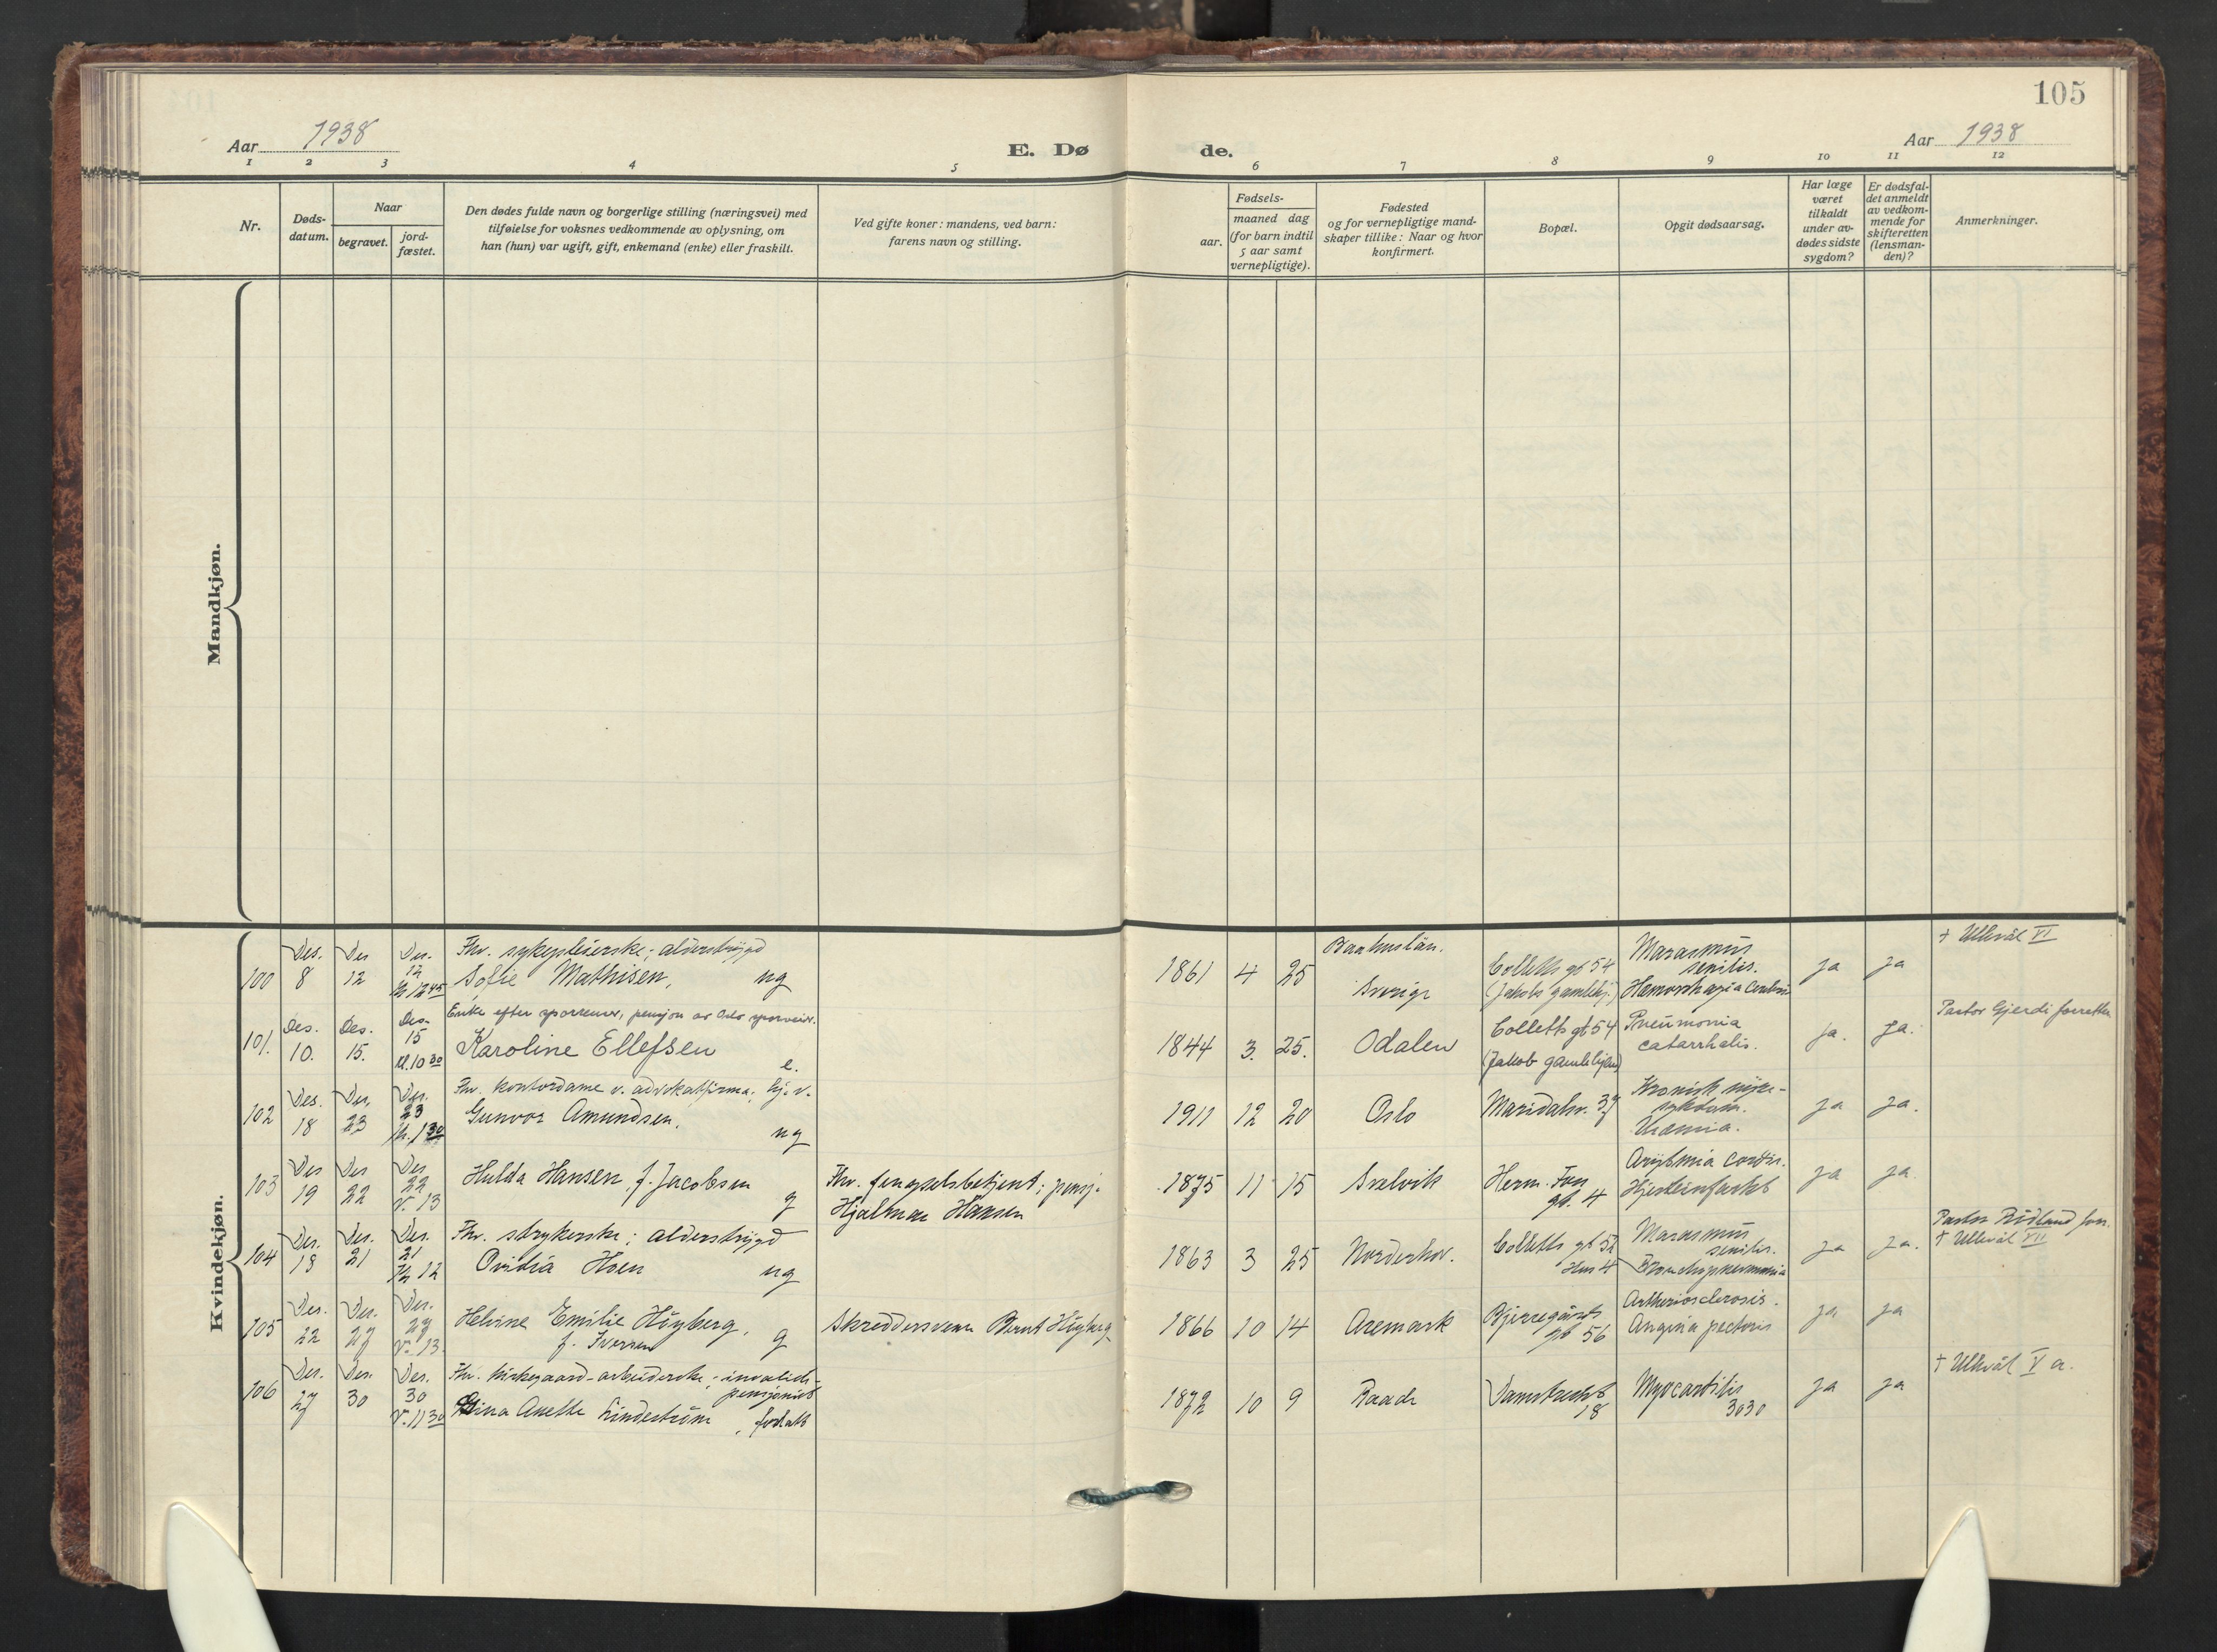 105
Aar 1938
E. Dø de.
Aar 1938
1 2 3 4 5 6 7 8 9 10 11 12
Nr.
Døds-
datum.
Naar
begravet.
jord-
fæstet.
Den dødes fulde navn og borgerlige stilling (næringsvei) med
tilføielse for voksnes vedkommende av oplysning, om
han (hun) var ugift, gift, enkemand (enke) eller fraskilt.
Ved gifte koner: mandens, ved barn:
farens navn og stilling.
Fødsels-
aar.
maaned dag
(for barn indtil
5 aar samt
vernepligtige).
Fødested
og for vernepligtige mand-
skaper tillike: Naar og hvor
konfirmert.
Bopæl.
Opgit dødsaarsag.
Har læge
været
tilkaldt
under av-
dødes sidste
sygdom?
Er dødsfal-
det anmeldt
av vedkom-
mende for
skifteretten
(lensman-
den)?
Anmerkninger.
Mandkjøn.
Kvindekjøn.
100
Des.
8
Des
12
Des.
12
kl. 12 45
Fhv. sykepleierske; alderstrygd
Sofie Mathisen, ug
1861 4 25
Bahuslän.
Sverige
Colletts gt 54
(Jakobs gamlehj.)
Marasmus
senilis.
Hæmorrhagia cerebri
ja ja
+ Ullevål VI
101.
Des.
10.
Des.
15.
Des.
15
kl. 10 30
Enke efter sporvens, pensjon av Oslo sporveier.
Karoline Ellefsen e.
1844 3. 25.
Odalen
Colletts gt 54
(Jakob gamlehjem)
Pneumonia
catarrhalis.
ja. ja.
Pastor Gjerdi forretter
102
Des.
18
Des,
23
Des.
23
kl. 1 30
Fhv. kontordame v. advokatfirma; hj. v.
Gunvor Amundsen, ug
1911 12 20
Oslo
Maridalsv. 37
Kronisk nyre-
sykdom.
Uræmia.
ja ja.
103
Des
19
Des
22
Des
22
V. 13
Hulda Hansen, f. Jacobsen g
Fhv. fengselsbetjent; pensj.
Hjalmar Hansen
1875 11 15
Svelvik
Herm. Foss
gt. 4
Arytmia cordis.
Hjerteinfarkt
ja ja
104
Des.
18
Des.
21
Des.
21
Kl 12
Fhv. strykerske; alderstrygd
Ovidia Hoen ug
1863 3 25
Norderhov.
Colletts gt 52
Hus 4
Marasmus
senilis.
Bronchopneumonia
ja ja.
Pastor Rödland forr.
+ Ullevål VII
105
Des.
22
Des.
27
Des.
27
V. 13.
Helvine Emilie Høyberg,
f. Iversen g
Skreddersvenn Bernt Høyberg
1866 10 14
Aremark
Bjerregårds
gt 56
Artheriosclerosis.
Angina pectoris
ja ja
106
Des.
27
Des.
30
Des.
30
V. 11 30
Fhv. kirkegaard-arbeiderske; invalide-
pensjonist
Anette Lindeström, forlatt
1872 10 9
Raade
Damstredet
18
Myocarditis
3030
ja ja
+ Ullevål V a.